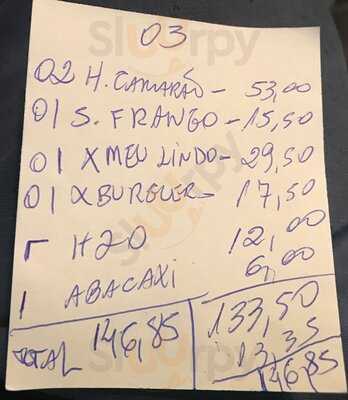 03
02 H. CAMARÃO - 53,00
01 S. FRANGO - 15,50
01 X MEU LINDO - 29,50
01 X BURGUER - 17,50
1 H20 12,00
1 ABACAXI 6,00
133,50
13,35
TOTAL 146,85 146,85